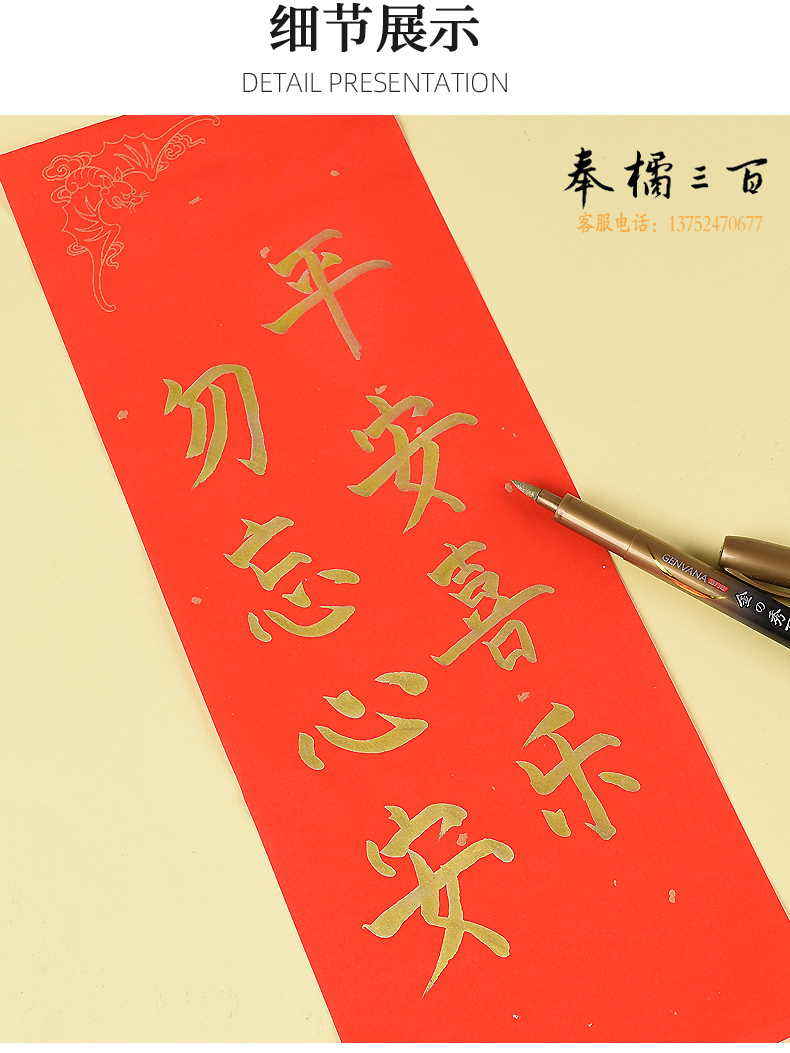 细节展示
DETAIL PRESENTATION
奉橘三百
客服电话：13752470677
平安喜乐
勿忘心安
GENVANA
金の秀